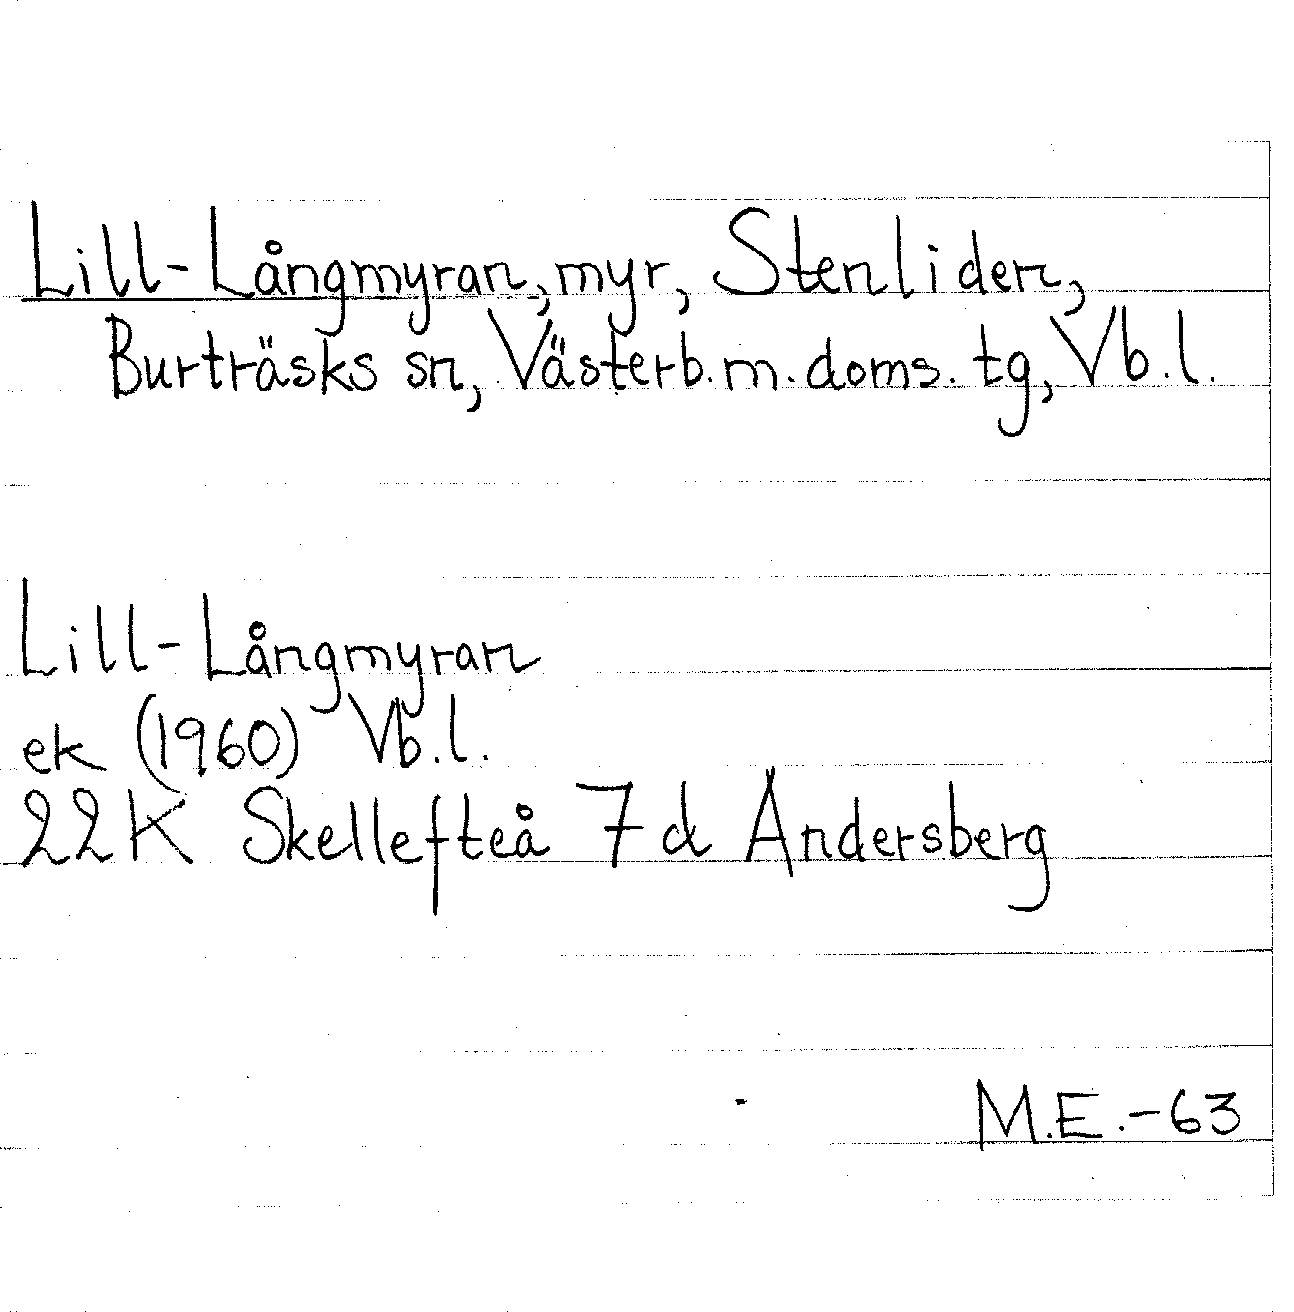 Lill-Långmyran, myr, Stenliden,
Burträsks sn, Västerb.m.doms.tg, Vb.l.
Lill-Långmyran
ek (1960) Vb.l.
22K Skellefteå 7d Andersberg
M.E.-63